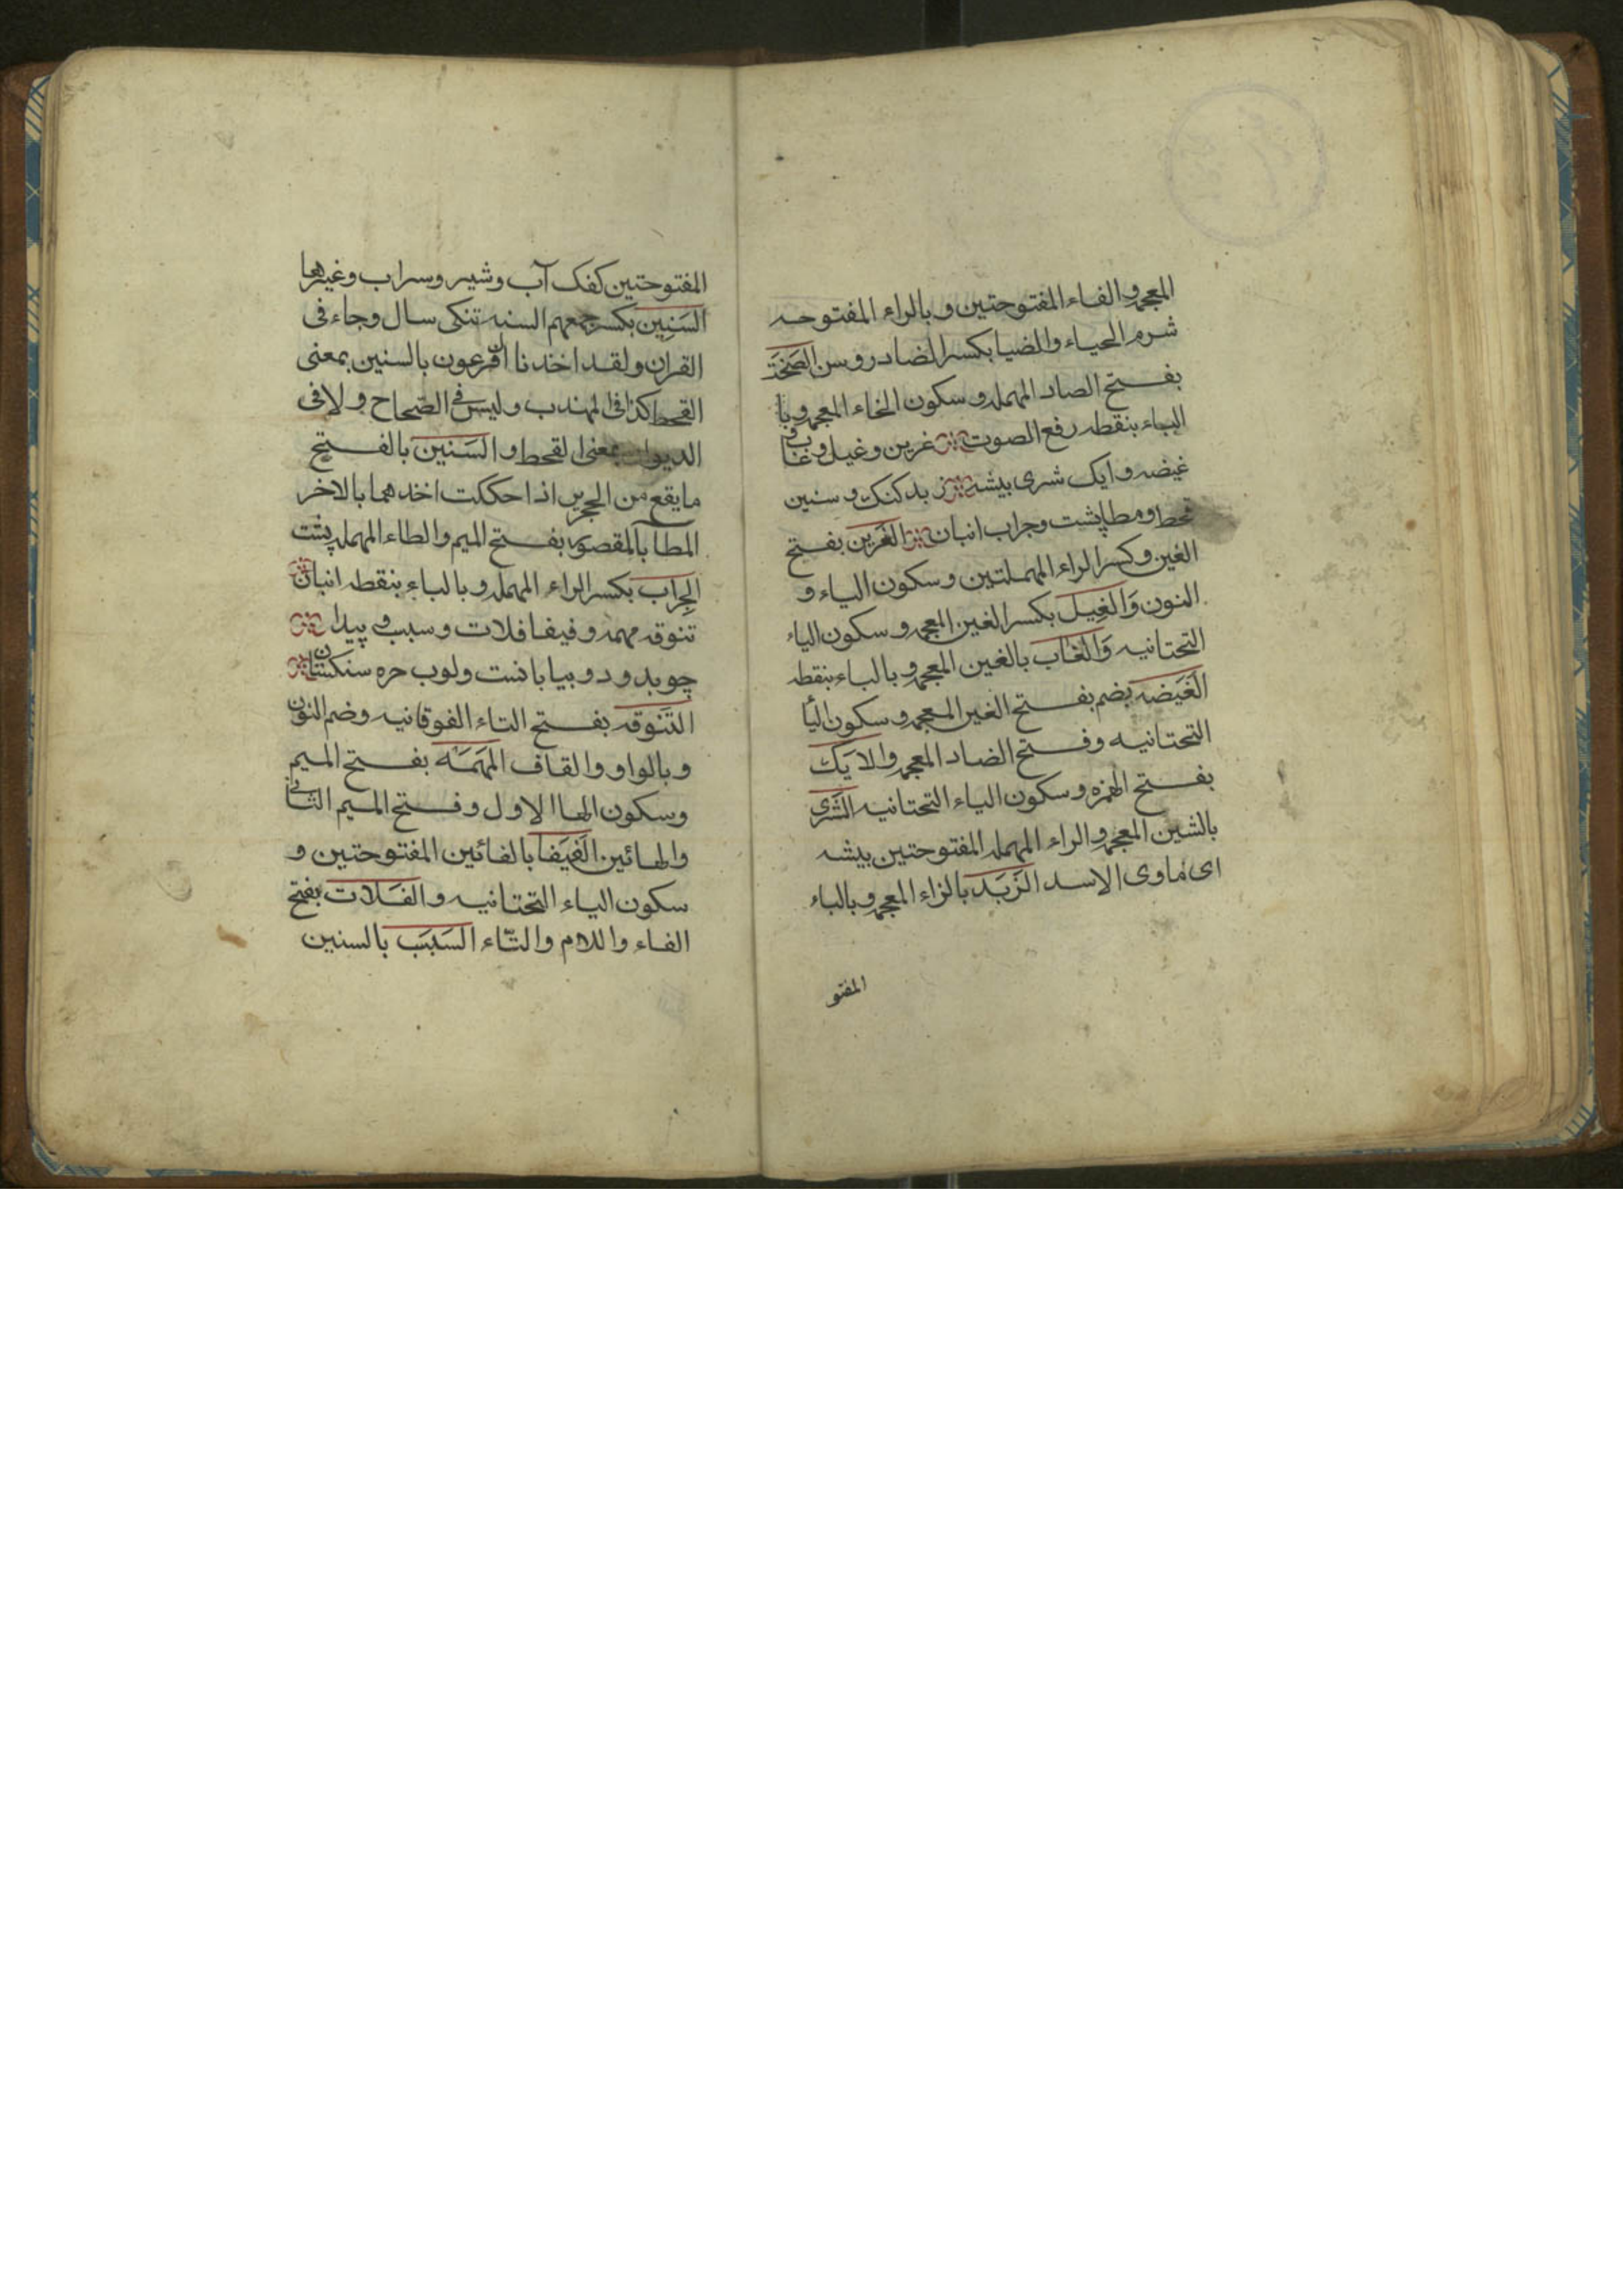 المعجمه والفاء المفتوحتين وبالراء المفتوحه
شرم الحياء والضيا بكسر الضاد روسن الصخبة
بفتح الصاد المهمله وسكون الخاء المعجمه وبا
الباء بنقطه رفع الصوت غرين وغيل وغاب و
غيضه وايك شرى بيشه زبد كفك وسنين
قحط ومطا پشت وجراب انبان الغرين بفتح
الغين وكسر الراء المهملتين وسكون الياء و
النون وَالغِيل بكسر الغين المعجمه وسكون الياء
التحتانيه وَالغاب بالغين المعجمه وبالباء بنقطه
الغَيَضه بضم بفتح الغين المعجمه وسكون اليأ
التحتانيه وفتح الضاد المعجمه والايَك
بفتح الهمزه وسكون الياء التحتانيه الشَرى
بالشين المعجمه والراء المهمله المفتوحتين بيشه
اى ماوى الاسد الزَبَد بالزاء المعجمه وبالباء
المفتو
المفتوحتين كفك آب وشير وسراب وغيرها
السَنِين بكسر جمعهم السنه تنكى سال وجاء فى
القران ولقد اخذنا ال فرعون بالسنين بمعنى
القحط كذا فى المهذب وليس فى الصّحاح ولا فى
الديوان بمعنى القحط والسَنين بالفتح
ما يقع من الحجرين اذا حككت احدهما بالاخر
المطا بالمقصوره بفتح الميم والطاء المهمله پشت
الجِراب بكسر الراء المهمله وبالباء بنقطه انبان
تنوقه مهمه وفيفا فلات وسبب و پيدا
چو بد ودو بيابانست ولوب حره سنكستان
التَنوقه بفتح التاء الفوقانيه وضم النون
وبالواو والقاف المَهمَه بفتح الميم
وسكون الها الاول وفتح الميم الثانى
والهائين الفَيَفا بالفائين المفتوحتين و
سكون الياء التحتانيه والفَلات بفتح
الفاء واللام والتّاء السَبَبَب بالسنين